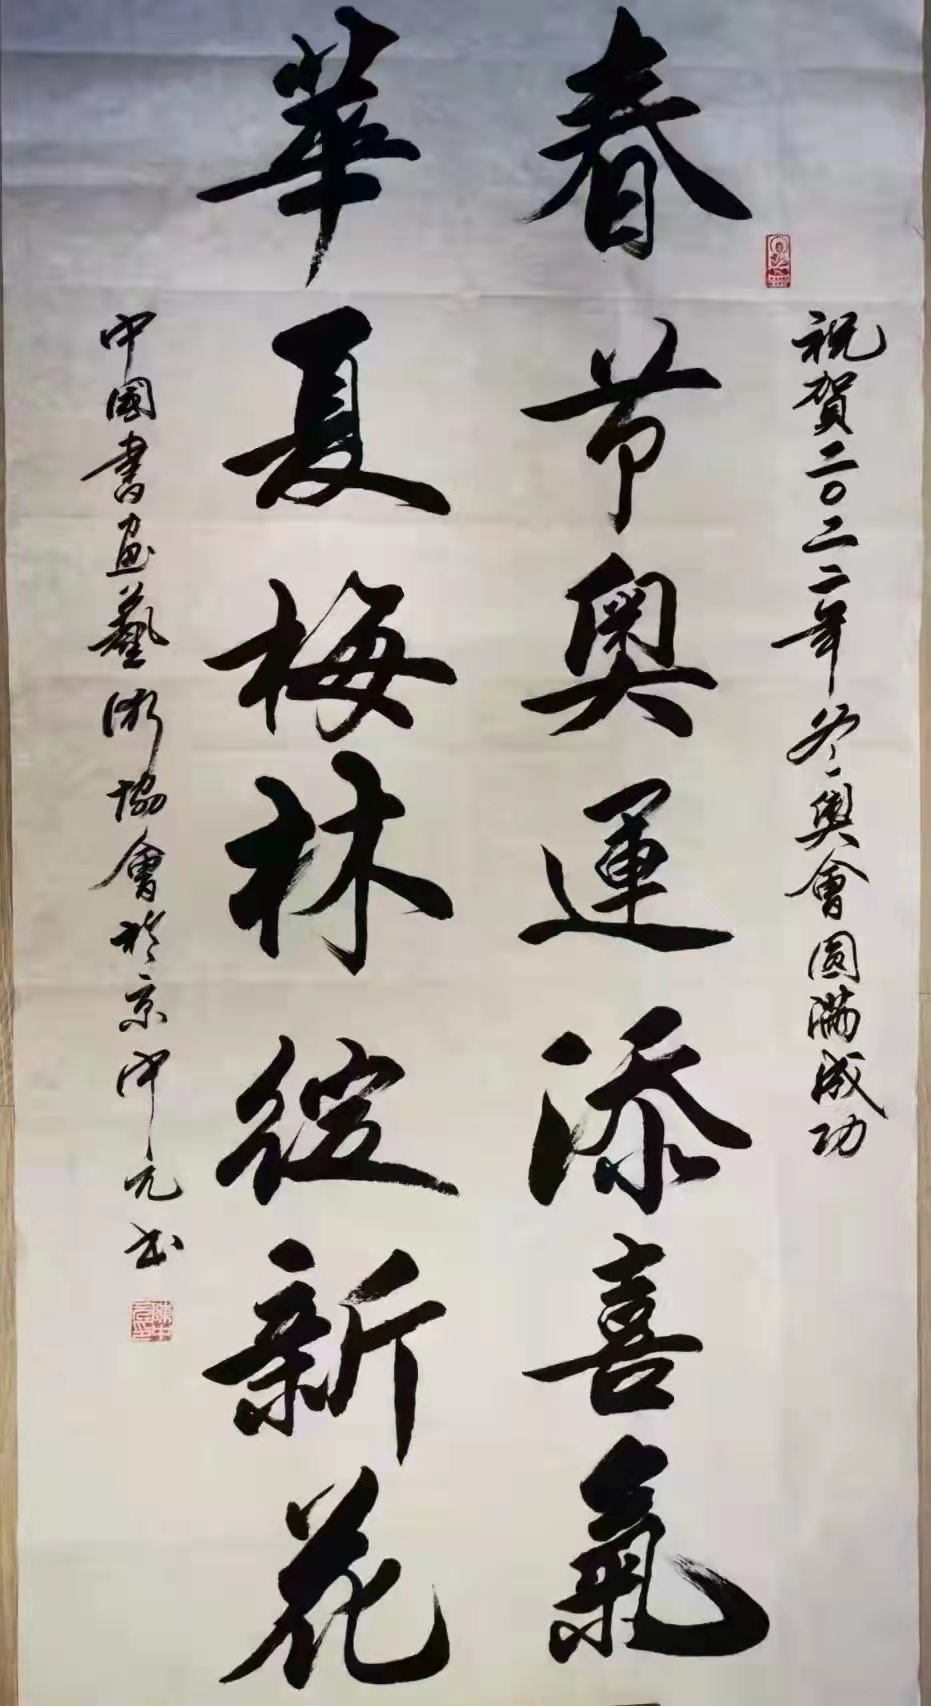 祝賀二〇二二年冬奧會圆满成功
春节奧運添喜氣
華夏梅林綻新花
中國書画藝術協會於京中元书